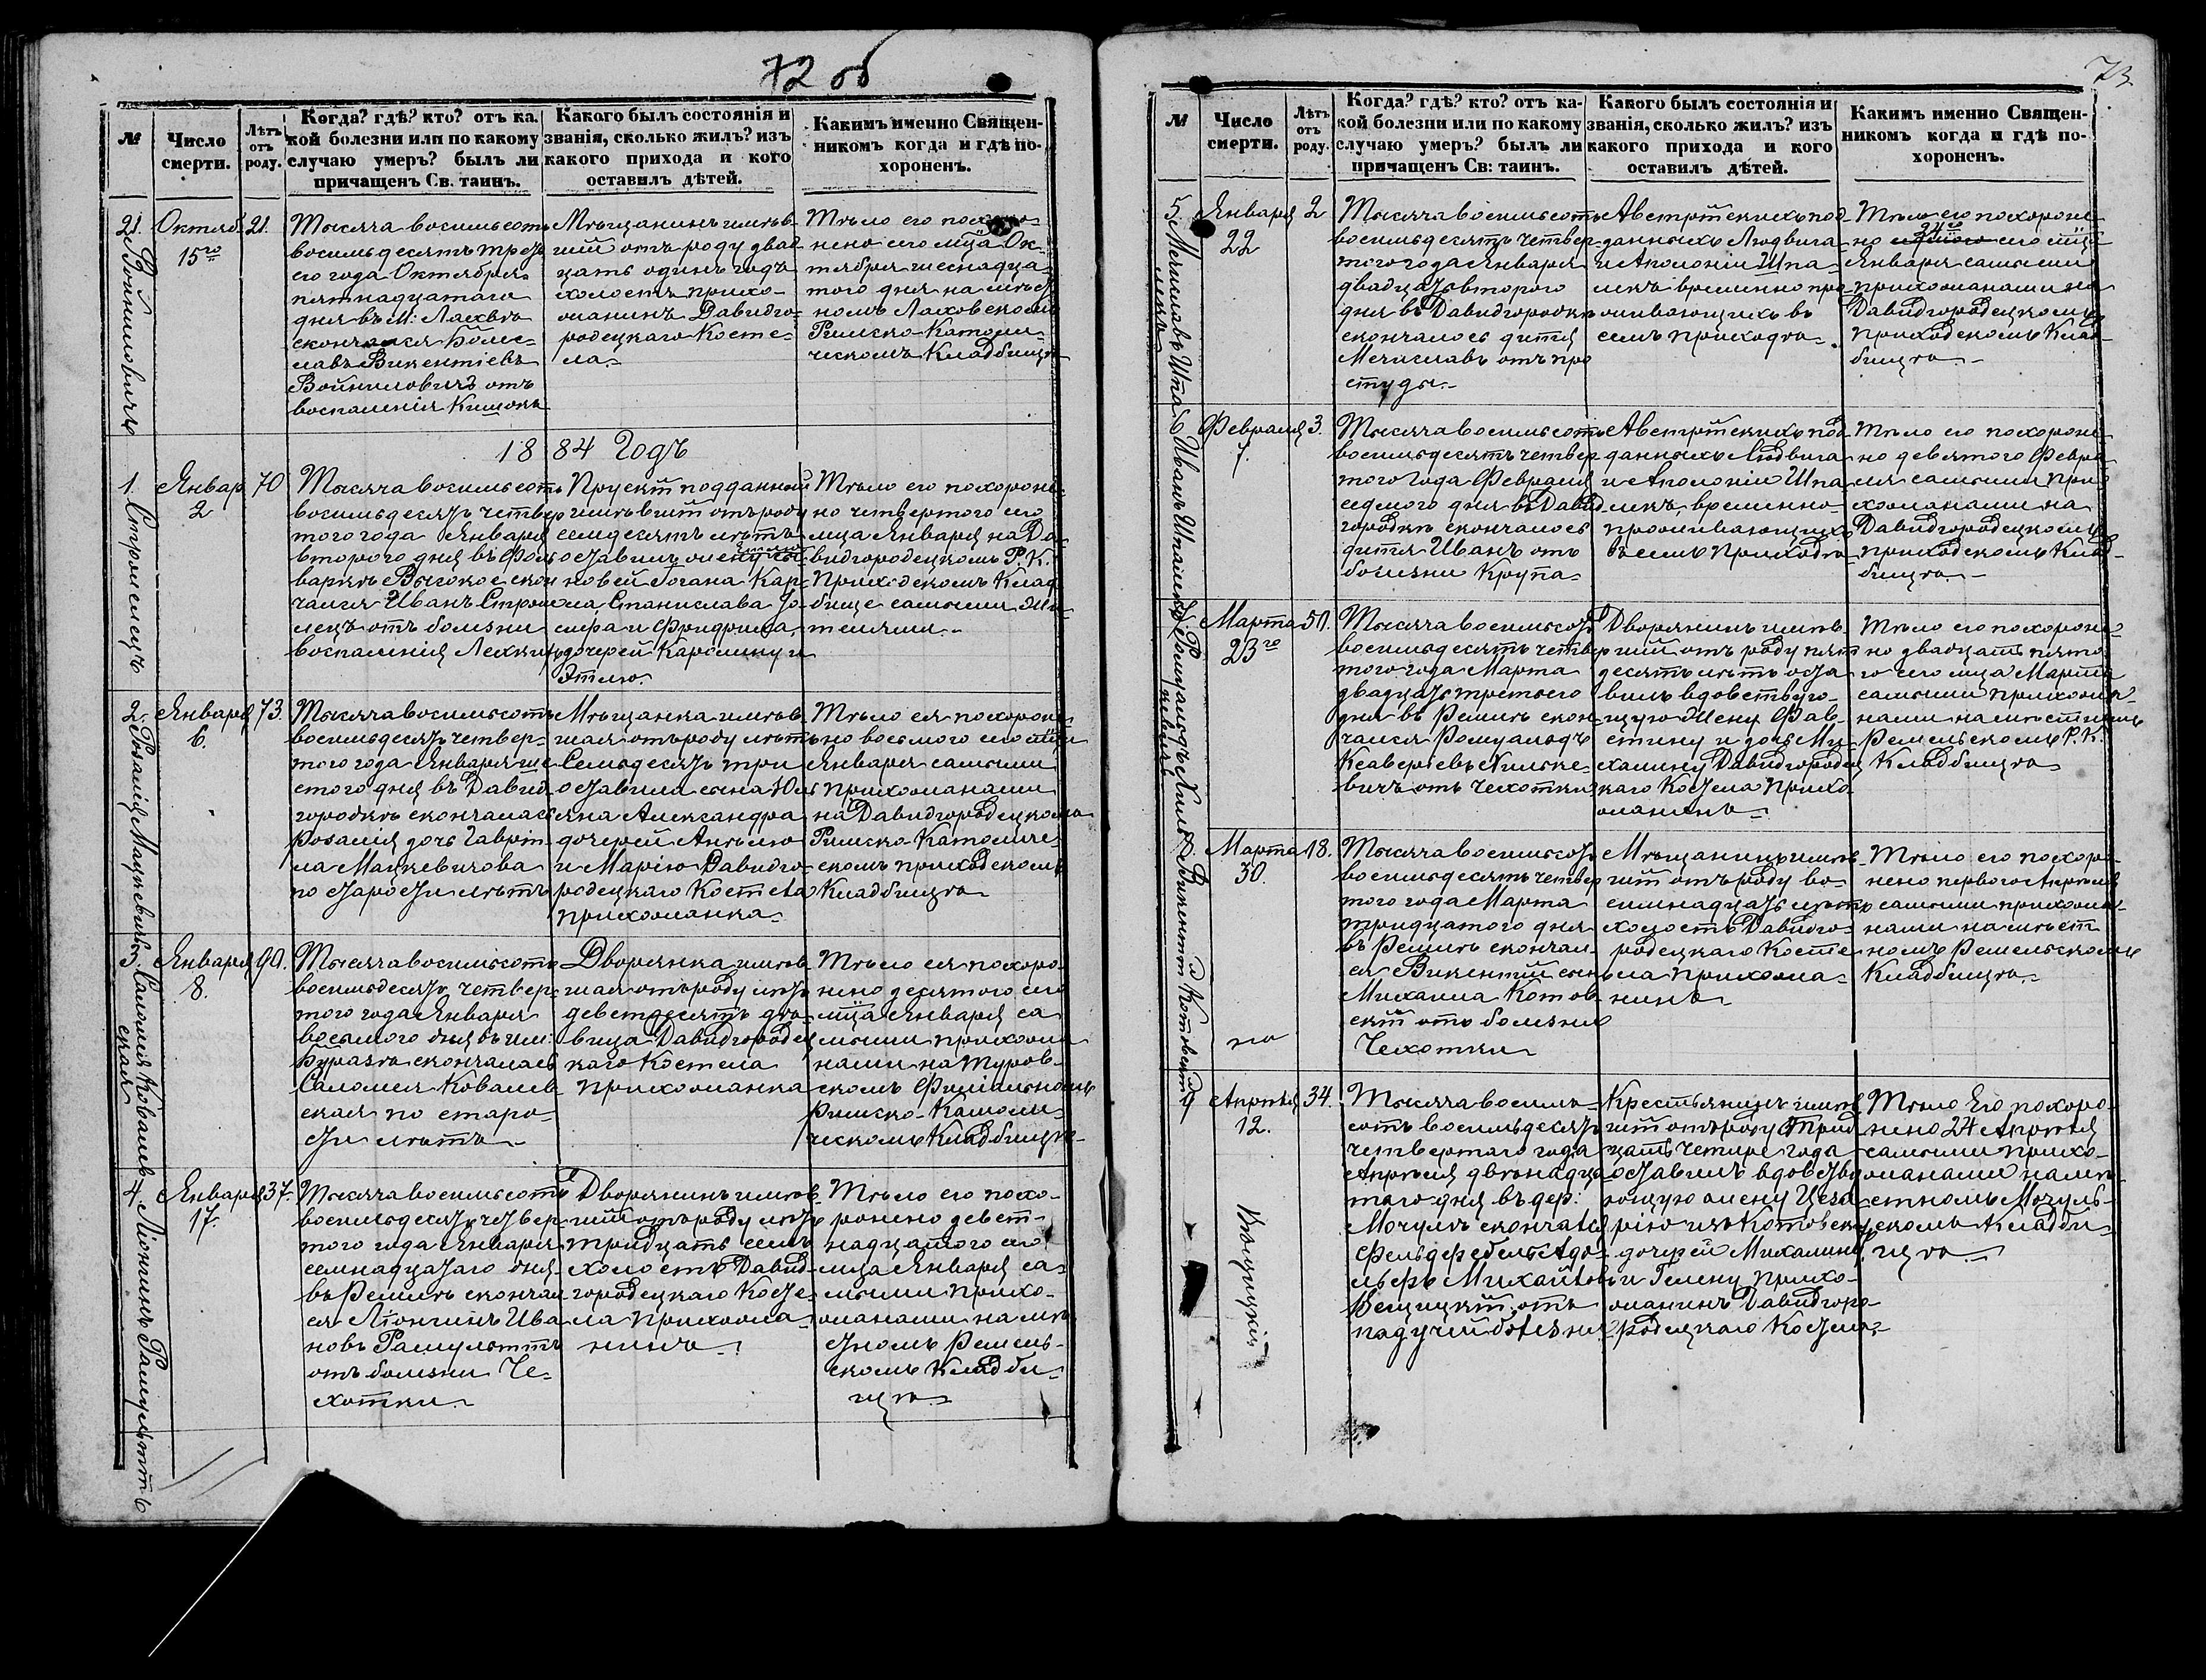 72 об
№
Число
смерти.
Лѣтъ
отъ
роду.
Когда? гдѣ? кто? отъ ка-
кой болезни или по какому
случаю умеръ? былъ ли
причащенъ Св. таинъ.
Какого былъ состоянія и
званія, сколько жилъ? изъ
какого прихода и кого
оставилъ дѣтей.
Какимъ именно Священ-
никомъ когда и гдѣ по-
хороненъ.
21.
Войниловичъ
Октяб.
15го
21.
Тысяча восемьсотъ
восемьдесятъ трет
его года Октября
пятнадцатаго
дня въ М. Лахвѣ
скончался Боле-
славъ Викентіевъ
Войниловичъ отъ
воспаленія Кишокъ
Мѣщанинъ имѣв-
шій отъ роду двад
цать одинъ годъ
холостъ прихо-
жанинъ Давидго-
родецкаго Косте-
ла.
Тѣло его похоро-
нено сего мца Ок-
тября шеснадца
того дня на мѣст
номъ Лаховскомъ
Римско-Католи-
ческомъ Кладбищѣ
1884 Годъ
1.
Стромецъ
Январ
2
70
Тысяча восемьсотъ
восемьдесятъ четвер
того года Января
второго дня въ фоль
варкѣ Высокое скон
чался Иванъ Стром
лецъ отъ болезни
воспаленія Легкихъ
Прускій подданный
имѣвшій отъ роду
семдесятъ лѣтъ
оставилъ жену сы
новей Іогана Кар-
ла, Станислава Іо-
сифа и Фридриха,
дочерей Каролину и
Этлю.
Тѣло его похороне-
но четвертого сего
мца Января на Да
видгородецкомъ Р. К.
Приходскомъ Клад
бище самыми жи
телями.
2.
Розалія Мацкевичъ
Января
6.
73.
Тысяча восемьсотъ
восемьдесятъ четвер-
того года Января ше
стого дня въ Давид
городкѣ скончалась
Розалія дочь Гаврі
ла Мацкевичова
по старости лѣтъ
Мѣщанка имѣв-
шая отъ роду лѣтъ
Семьдесятъ три
оставила сына Юлі
яна Александра
дочерей Анелю
и Марію Давидго-
родецкаго Костела
прихожанка
Тѣло ея похороне-
но восьмого сего мца
Января самыми
прихожанами
на Давидгородецкомъ
Римско-Католиче-
скомъ приходскомъ
Кладбищѣ
3.
Саломія Ковалев-
ская
Января
8.
90.
Тысяча восемьсотъ
восемьдесятъ четвер-
того года Января
восьмого дня въ им:
Буразѣ скончалась
Саломея Ковалев
ская по старо-
сти лѣтъ
Дворянка имѣв-
шая отъ роду лѣтъ
девятдесятъ дѣ-
вица Давидгородец
каго Костела
прихожанка
Тѣло ея похоро-
нено десятого сего
мца Января са
мыми прихожа
нами на Туров-
скомъ Филіальномъ
Римско-Католи-
ческомъ Кладбищѣ
4.
Лонгинъ Рамультъ
Января
17.
37.
Тысяча восемьсотъ
восемьдесятъ четвер-
того года Января
семнадцатаго дня
въ Ремлѣ скончал
ся Лонгинъ Ива
новъ Рамультъ
отъ болезни Че-
хотки
Дворянинъ имѣв-
шій отъ роду лѣтъ
тридцать семь
холостъ Давид-
городецкаго Косте-
ла прихожа-
нинъ
Тѣло его похо-
ронено девят-
надцатого сего
мца Января са-
мыми прихо-
жанами на мѣ
стномъ Ремель-
скомъ Кладби-
щѣ
73
№
Число
смерти.
Лѣтъ
отъ
роду.
Когда? гдѣ? кто? отъ ка-
кой болезни или по какому
случаю умеръ? былъ ли
причащенъ Св: таинъ.
Какого былъ состоянія и
званія, сколько жилъ? изъ
какого прихода и кого
оставилъ дѣтей.
Какимъ именно Священ-
никомъ когда и гдѣ по-
хороненъ.
5.
Января
22
2
Тысяча восемьсотъ
восемьдесятъ четвер-
того года Января
двадцать второго
дня въ Давидгородкѣ
скончалось дитя
Мечиславъ отъ про
студы.
Австрійскихъ под
данныхъ Людвига
и Аполоніи Шпа-
лекъ временно про
живающихъ въ
семъ приходѣ
Тѣло его похороне-
но 24го сего мца
Января самыми
прихожанами на
Давидгородецкомъ
приходскомъ Клад-
бищѣ
6
Иванъ
Февраля
7.
3.
Тысяча восемьсотъ
восемьдесятъ четвер
того года Февраля
седмого дня въ Давид
городкѣ скончалось
дитя Иванъ отъ
болезни Крупа
Австрійскихъ под
данныхъ Людвига
и Аполоніи Шпа
лекъ временно-
проживающихъ
въ семъ приходѣ
Тѣло его похороне-
но девятого Февра
ля самыми при
хожанами на
Давидгородецкомъ
приходскомъ Клад-
бищѣ
Ромуальдъ
Марта
23го
50.
Тысяча восемьсотъ
восемьдесятъ четвер
того года Марта
двадцать третьего
дня въ Ремлѣ скон
чался Ромуальдъ
Ксаверіевъ
отъ чехотки
Дворянинъ имѣв-
шій отъ роду пят
десятъ лѣтъ оста
вилъ вдовствую-
щую жену Фав-
стину и дочь Ми-
халину Давидгородец
каго Костела прихо
жанинъ
Тѣло его похороне-
но двадцать пято
го сего мца Марта
самыми прихожа-
нами на мѣстномъ
Ремельскомъ Р. К.
Кладбищѣ
8
Викентій Котовскій
Марта
30.
18.
Тысяча восемьсотъ
восемьдесятъ четвер
того года Марта
тридцатого дня
въ Ремлѣ скончал
ся Викентій сынъ
Михаила Котов
скій отъ болезни
Чехотки
Мѣщанинъ имѣв-
шій отъ роду во-
семнадцать лѣтъ
холостъ Давидго-
родецкаго Косте
ла прихожа-
нинъ
Тѣло его похоро-
нено первого Апрѣля
самыми прихожа-
нами на мѣст
номъ Ремельскомъ
Кладбищѣ.
9
Апрѣля
12.
34.
Тысяча восемь-
сотъ восемьдесятъ
четвертаго года
Апрѣля двѣнадца
таго дня въ дер:
Мочулѣ скончался
Фельдфебель Адо-
льфъ Михайловъ
отъ
падучей болезни
Крестьянинъ имѣв
шій отъ роду Трид
цать четыре года
оставилъ вдовству
ющую жену Цеза
рію изъ Котовскихъ
дочерей Михалину
и Гелену прихо-
жанинъ Давидгоро-
родецкаго Костела
Тѣло Его похоро-
нено 24 Апрѣля
самыми прихо-
жанами на мѣ-
стномъ Мочуль-
скомъ Кладби-
щѣ